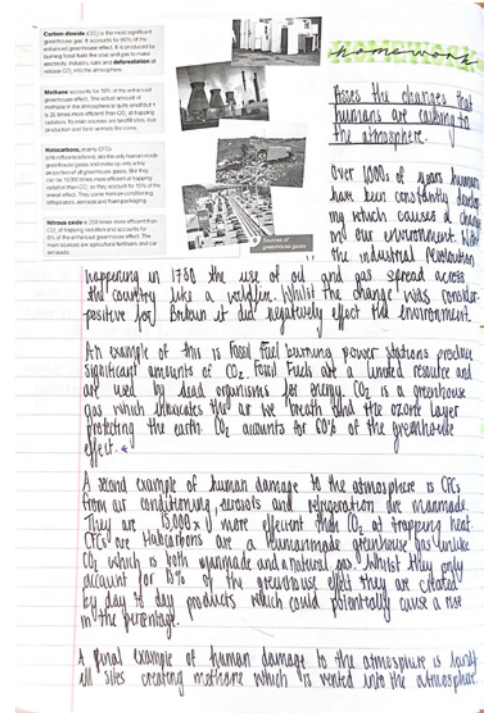 Carbon dioxide (CO₂) is the most significant
greenhouse gas. It accounts for 60% of the
enhanced greenhouse effect. It is produced by
burning fossil fuels like coal and gas to make
electricity. Industry, cars and deforestation all
release CO₂ into the atmosphere.
Methane accounts for 15% of the enhanced
greenhouse effect. The actual amount of
methane in the atmosphere is quite small but it
is 25 times more efficient than CO₂ at trapping
radiation. Its main sources are landfill sites, rice
production and farm animals like cows.
Halocarbons, mainly CFCs
are the only human-made
greenhouse gases and make up only a tiny
proportion of all greenhouse gases. But they
can be 15,000 times more efficient at trapping
radiation than CO₂, so they account for 15% of the
overall effect. They come from air-conditioning,
refrigerators, aerosols and foam packaging.
Nitrous oxide is 250 times more efficient than
CO₂ at trapping radiation and accounts for
6% of the enhanced greenhouse effect. The
main sources are agricultural fertilisers and car
exhausts.
Sources of
greenhouse gases
homework
Asses the changes that
humans are causing to
the atmosphere.
Over 1000s of years humans
have been constantly develop
ing which causes a change
in our environment. Whilst
the industrial revolution
happening in 1750 the use of oil and gas spread across
the country like a Whilst the change was consider-
positive for Britain it did negatively effect the environment.
An example of this is Fossil Fuel burning power stations produce
significant amounts of CO₂. Fossil Fuels are a limited resource and
are used by dead organisms for energy. CO₂ is a greenhouse
gas which the air we breath and the ozone layer
protecting the earth. CO₂ accounts for 60% of the greenhouse
effect.
A second example of human damage to the atmosphere is CFCs
from air conditioning, aerosols and refrigeration are manmade.
They are 15,000 x more efficient than CO₂ at trapping heat.
CFCs are Halocarbons are a humanmade greenhouse gas unlike
CO₂ which is both manmade and a natural gas. Whilst they only
account for 15% of the greenhouse effect they are created
by day to day products which could potentially cause a rise
in the percentage.
A final example of human damage to the atmosphere is landf
ill sites creating methane which is vented into the atmosphere